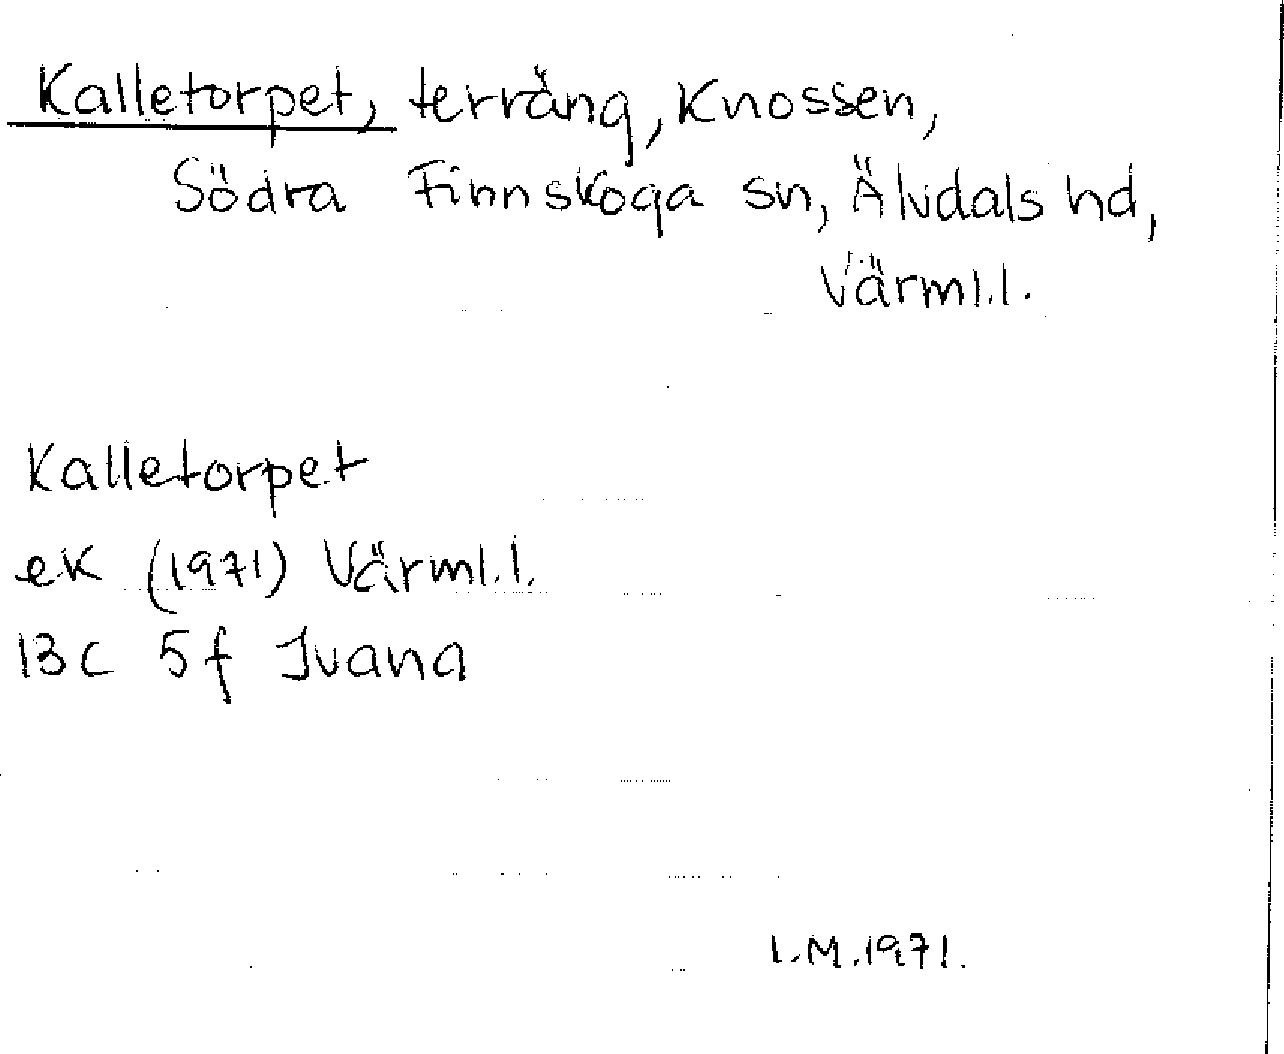 Kalletorpet, terräng, Knossen,
Södra Finnskoga sn, Älvdals hd,
Värml.l.
Kalletorpet
ek (1971) Värml.l.
13C 5f Juana
I.M.1971.